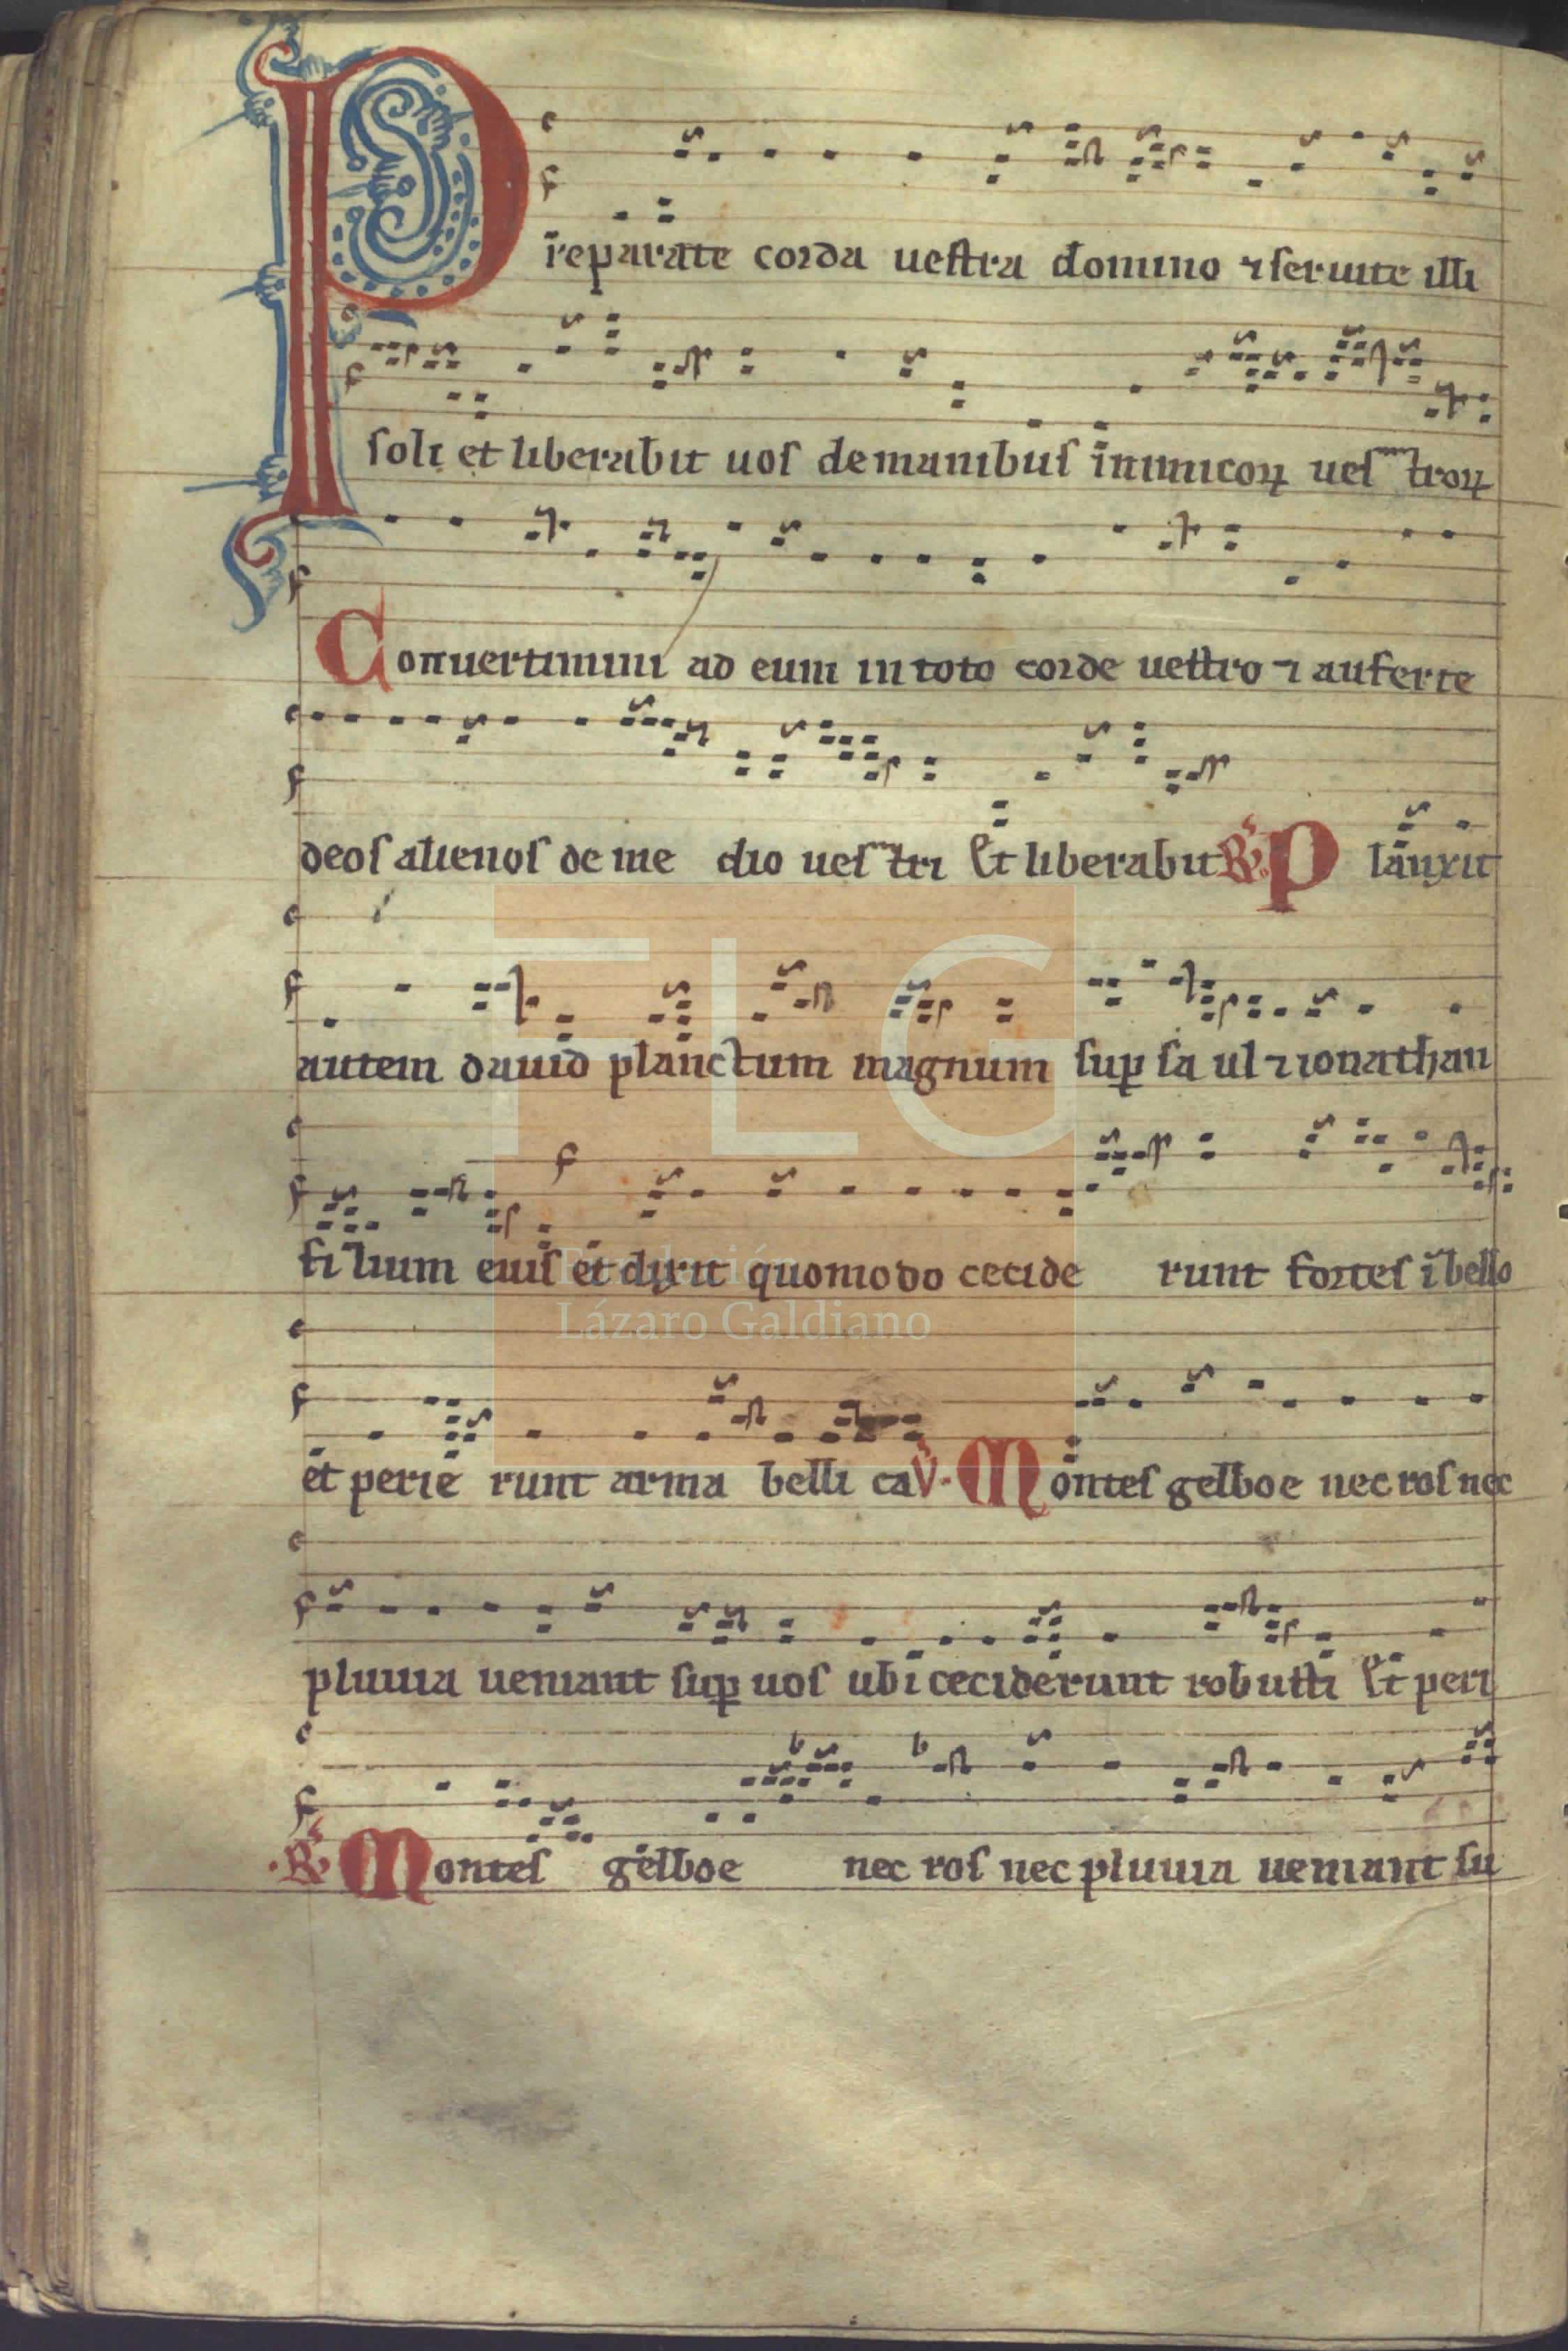 Preparate corda uestra domino ⁊ seruite illi
soli et liberabit uos de manibus inimicoꝝ ues troꝝ
Conuertimini ad eum in toto corde uestro ⁊ auferte
deos alienos de me dio ues tri Et liberabit R. Planxit
autem dauid planctum magnum suꝑ sa ul ⁊ ionathan
FLG
fi lium eius et dixit quomodo cecide runt fortes ī bello
Fundación
Lázaro Galdiano
et perie runt arma belli ca V. Montes gelboe nec ros nec
pluuia ueniant suꝑ uos ubi ceciderunt robusti Et peri
R. Montes gelboe nec ros nec pluuia ueniant su